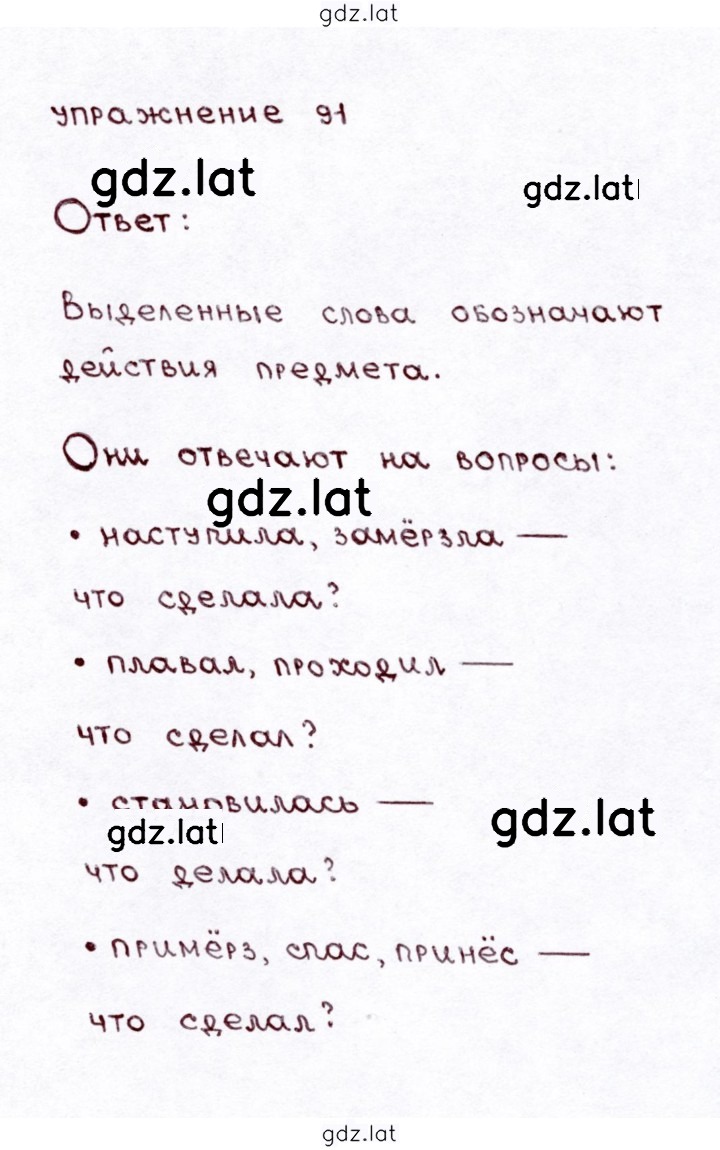 gdz.lat
упражнение 91
gdz.lat
gdz.lat
Ответ:
Выделенные слова обозначают
действия предмета.
Они отвечают на вопросы:
gdz.lat
• наступила, замёрзла —
что сделала?
• плавал, проходил —
что сделал?
• становилась —
gdz.lat
gdz.lat
что делала?
• примёрз, спас, принёс —
что сделал?
gdz.lat